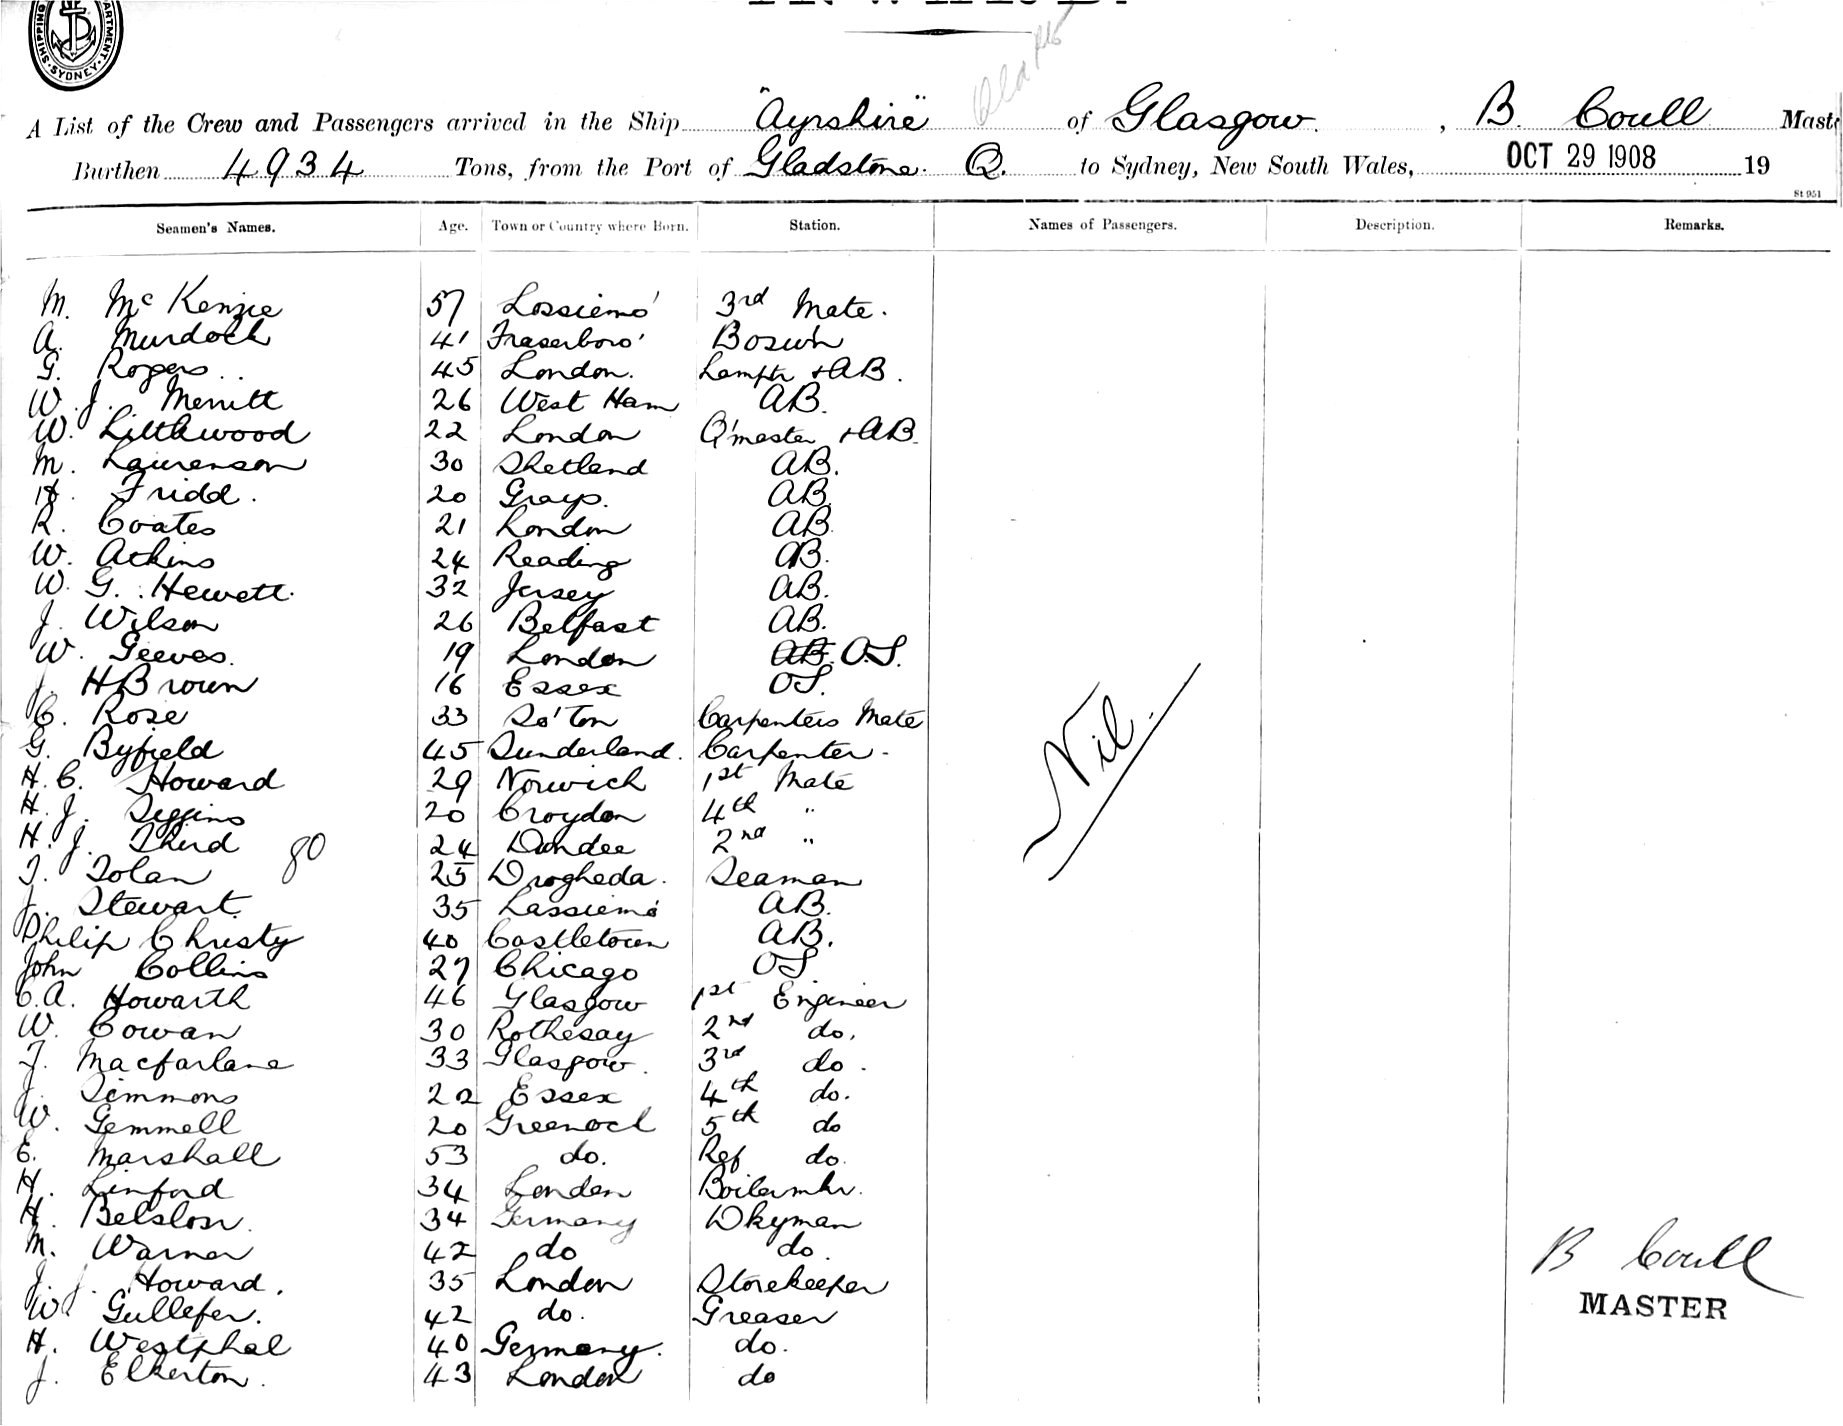 SHIPPING DEPARTMENT. SYDNEY.
A List of the Crew and Passengers arrived in the Ship "Ayrshire" of Glasgow. , B. Coull Maste
Burthen 4934 Tons, from the Port of Gladstone. Q. to Sydney, New South Wales, OCT 29 1908 19
St 951
Seamen's Names. Age. Town or Country where Born. Station. Names of Passengers. Description. Remarks.
M. McKenzie 57 Lossiemo' 3rd Mate.
A. Murdoch 41 Fraserboro' Bosun
G. Rogers 45 London. Lamptr + AB.
W. J. Merritt 26 West Ham AB.
W. Littlewood 22 London Q'master + AB.
M. Laurenson 30 Shetland AB.
H. Fridd. 20 Grays. AB
R. Coates 21 London AB.
W. Atkins 24 Reading AB.
W. G. Hewett. 32 Jersey AB.
J. Wilson 26 Belfast AB.
W. Geeves. 19 London AB. O.S.
J. H Brown 16 Essex OS.
C. Rose 33 So'ton Carpenters Mate
G. Byfield 45 Sunderland. Carpenter -
H. C. Howard 29 Norwich 1st Mate
H. J. Siggins 20 Croydon 4th "
H. J. Third 80 24 Dundee 2nd "
T. Tolan 25 Drogheda. Seaman
J. Stewart. 35 Lassiemo' AB.
Philip Christy 40 Castletown AB.
John Collins 27 Chicago OS
C. A. Howarth 46 Glasgow 1st Engineer
W. Cowan 30 Rothesay 2nd do.
T. Macfarlane 33 Glasgow. 3rd do.
J. Simmons 22 Essex 4th do.
W. Gemmell 20 Greenock 5th do
E. Marshall 53 do. Ref do.
H. Linford 34 London Boilermkr.
H. 34 Germany Dkyman
M. Warner 42 do do.
J. J. Howard. 35 London Storekeeper
W Gullefer. 42 do. Greaser
H. Westphal 40 Germany. do.
J. Elkerton. 43 London do
Nil.
B Coull
MASTER